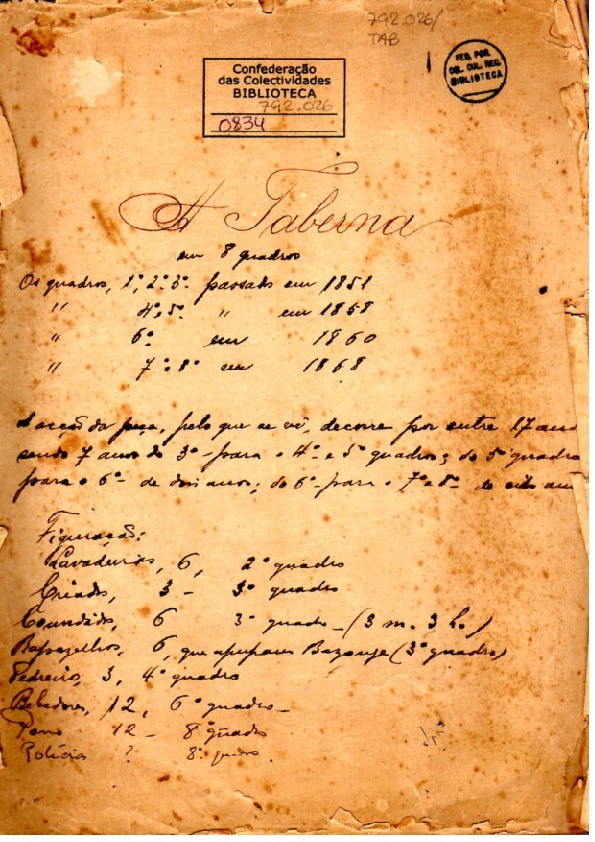 792.026/
TAB
Confederação
das Colectividades
BIBLIOTECA
792.026
0834
FED. POR.
COL. CUL. REC.
BIBLIOTECA
A Taberna
em 8 quadros
Os quadros, 1º, 2º, 3º passado em 1851
" 4º, 5º " em 1858
" 6º em 1860
" 7º, 8º em 1868
A acção da peça, pelo que se vê, decorre por entre 17 anos
sendo 7 anos do 3º para o 4º e 5º quadros; do 5º quadro
para o 6º de dois anos; do 6º para o 7º e 8º de oito an
Figuração:
Lavadeiras, 6, 2º quadro
Criados, 3 - 3º quadro
Convidados, 6 3º quadro - (3 m. 3 h.)
Rapazelhos, 6, que apupam Bazouge (3º quadro)
Pedreiros, 3, 4º quadro
Bebedores, 12, 6º quadro -
Povo 12 - 8º quadro
Polícias 2 8º quadro